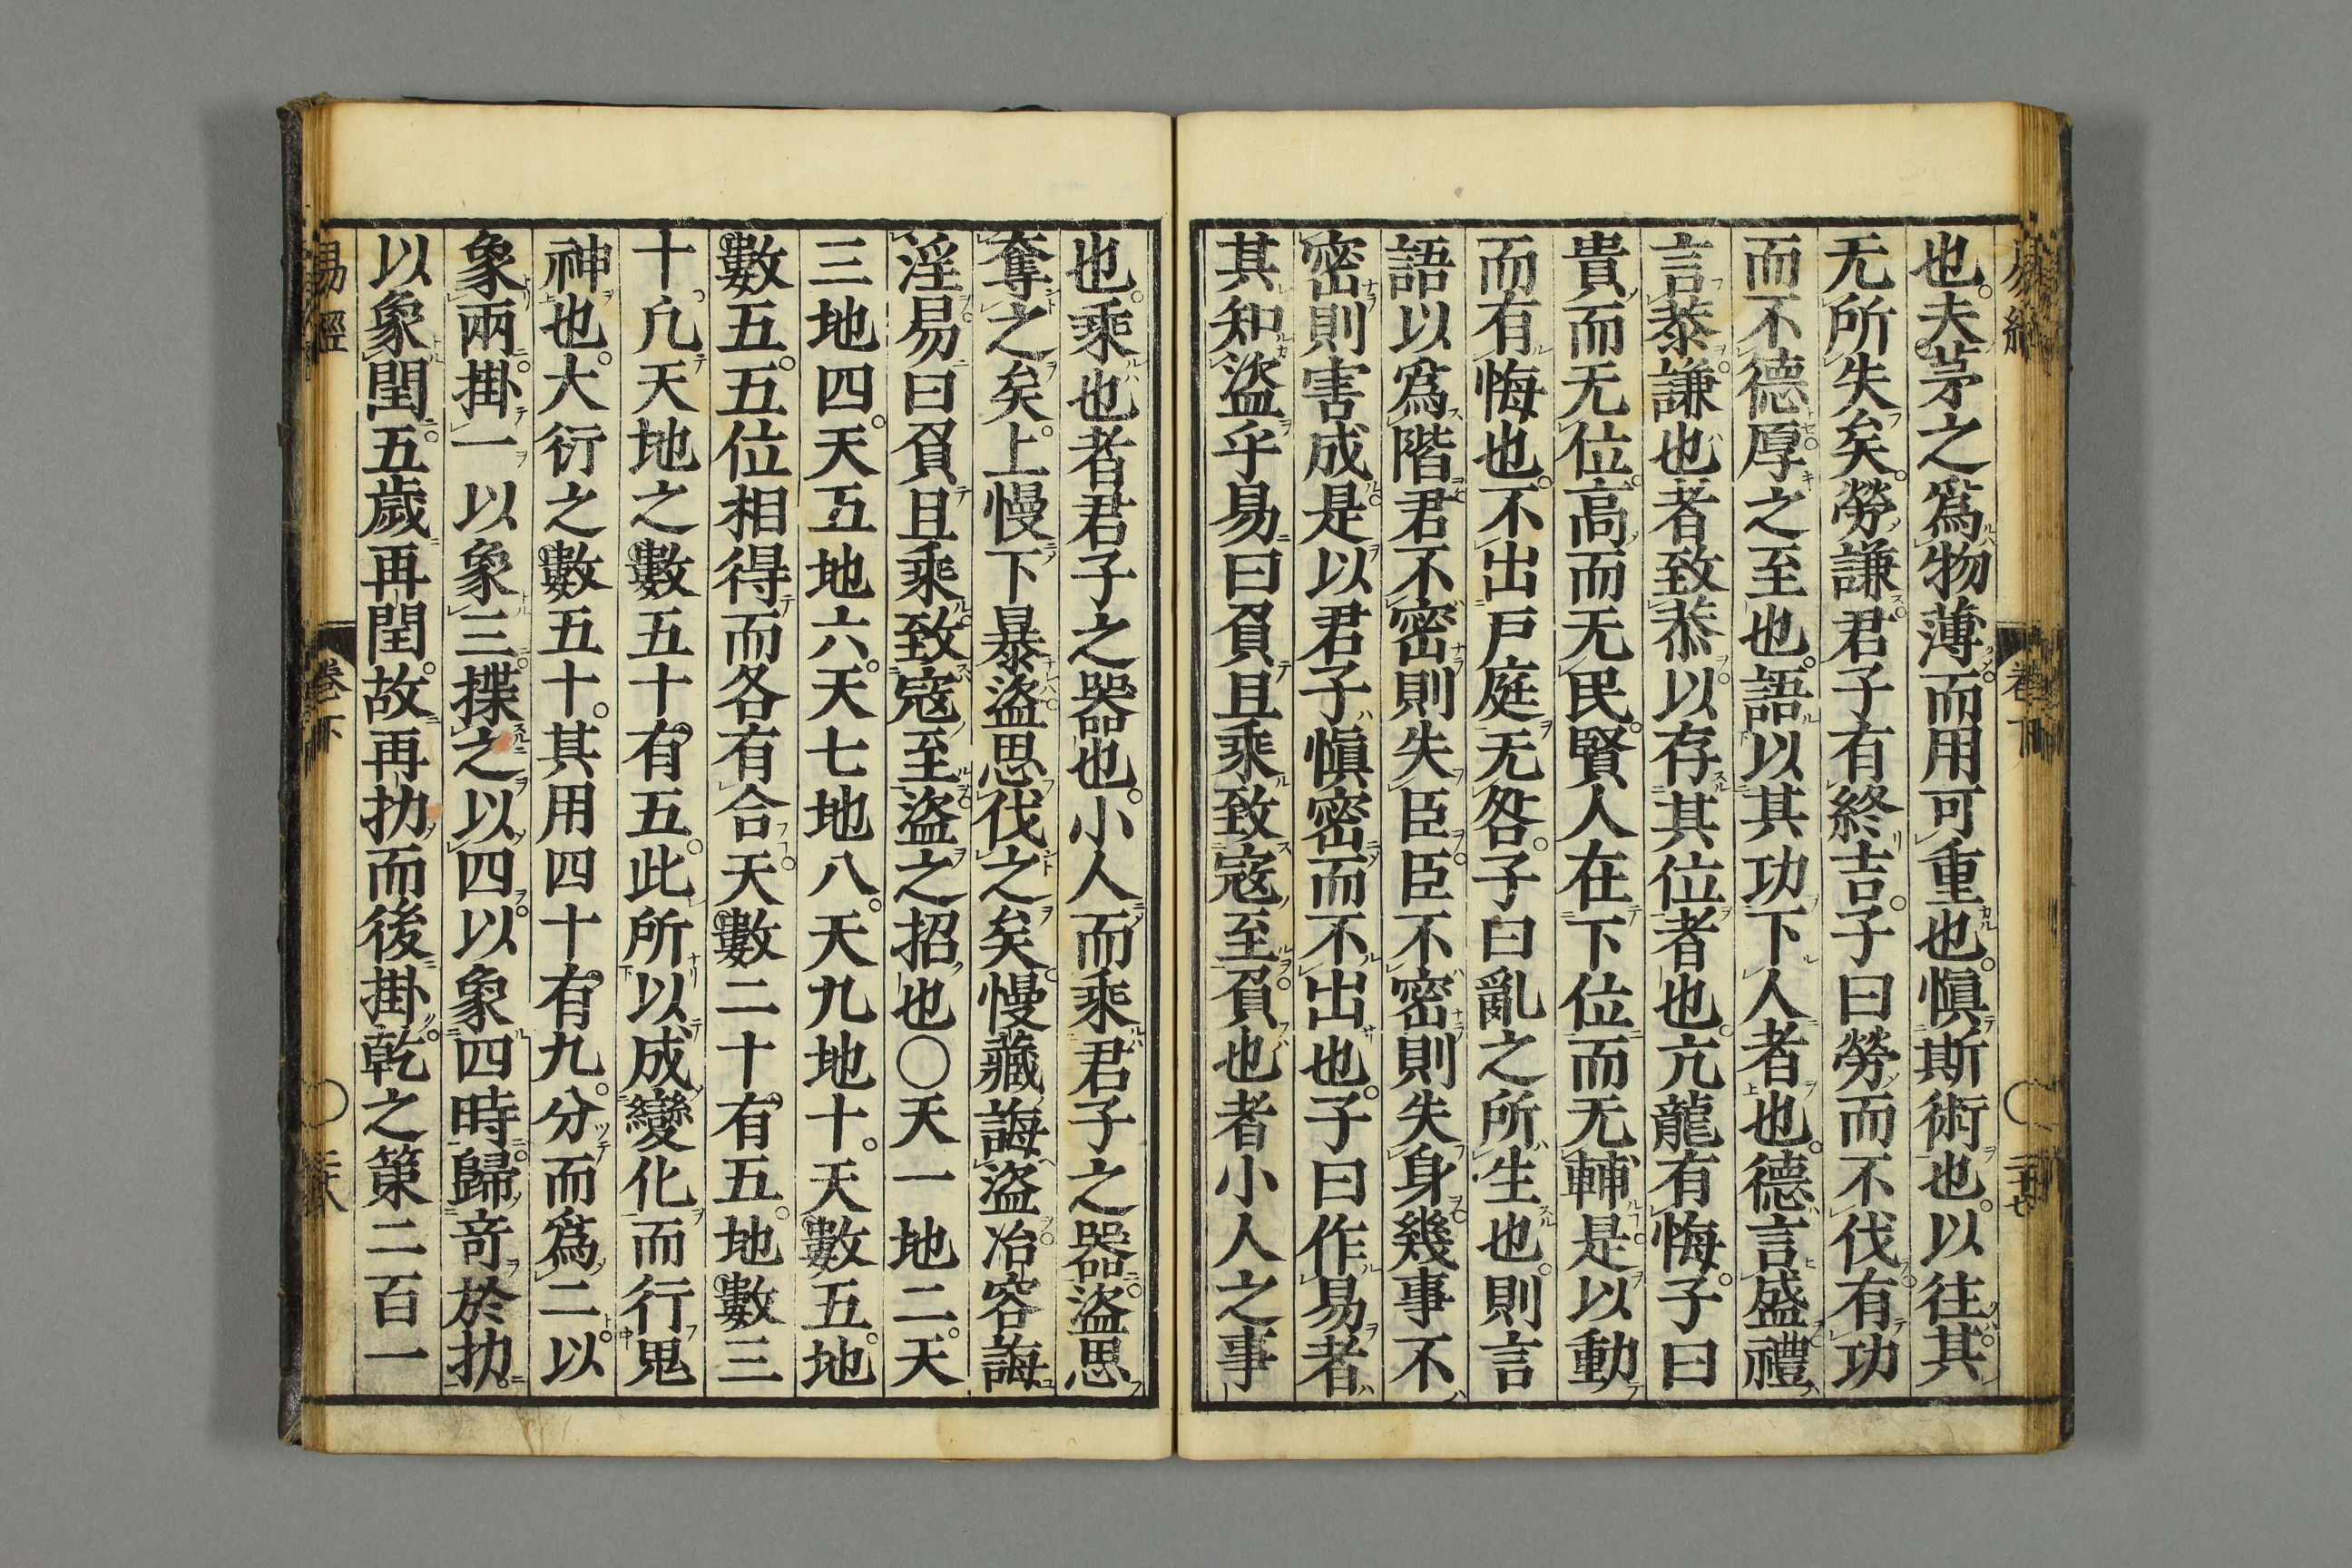 也夫茅之爲物薄而用可重也愼斯術也以往其
无所失矣勞謙君子有終吉子曰勞而不伐有功
而不德厚之至也語以其功下人者也德言盛禮
言恭謙也者致恭以存其位者也亢龍有悔子曰
貴而无位高而无民賢人在下位而无輔是以動
而有悔也不出戸庭无咎子曰亂之所生也則言
語以爲階君不密則失臣臣不密則失身幾事不
密則害成是以君子愼密而不出也子曰作易者
其知盜乎易曰負且乘致寇至負也者小人之事
也乘也者君子之器也小人而乘君子之器盜思
奪之矣上慢下暴盜思伐之矣慢藏誨盜冶容誨
淫易曰負且乘致寇至盜之招也〇天一地二天
三地四天五地六天七地八天九地十天數五地
數五五位相得而各有合天數二十有五地數三
十凢天地之數五十有五此所以成變化而行鬼
神也大衍之數五十其用四十有九分而爲二以
象兩掛一以象三揲之以四以象四時歸竒於扐
以象閏五歲再閏故再扐而後掛乾之策二百一
易經
卷下